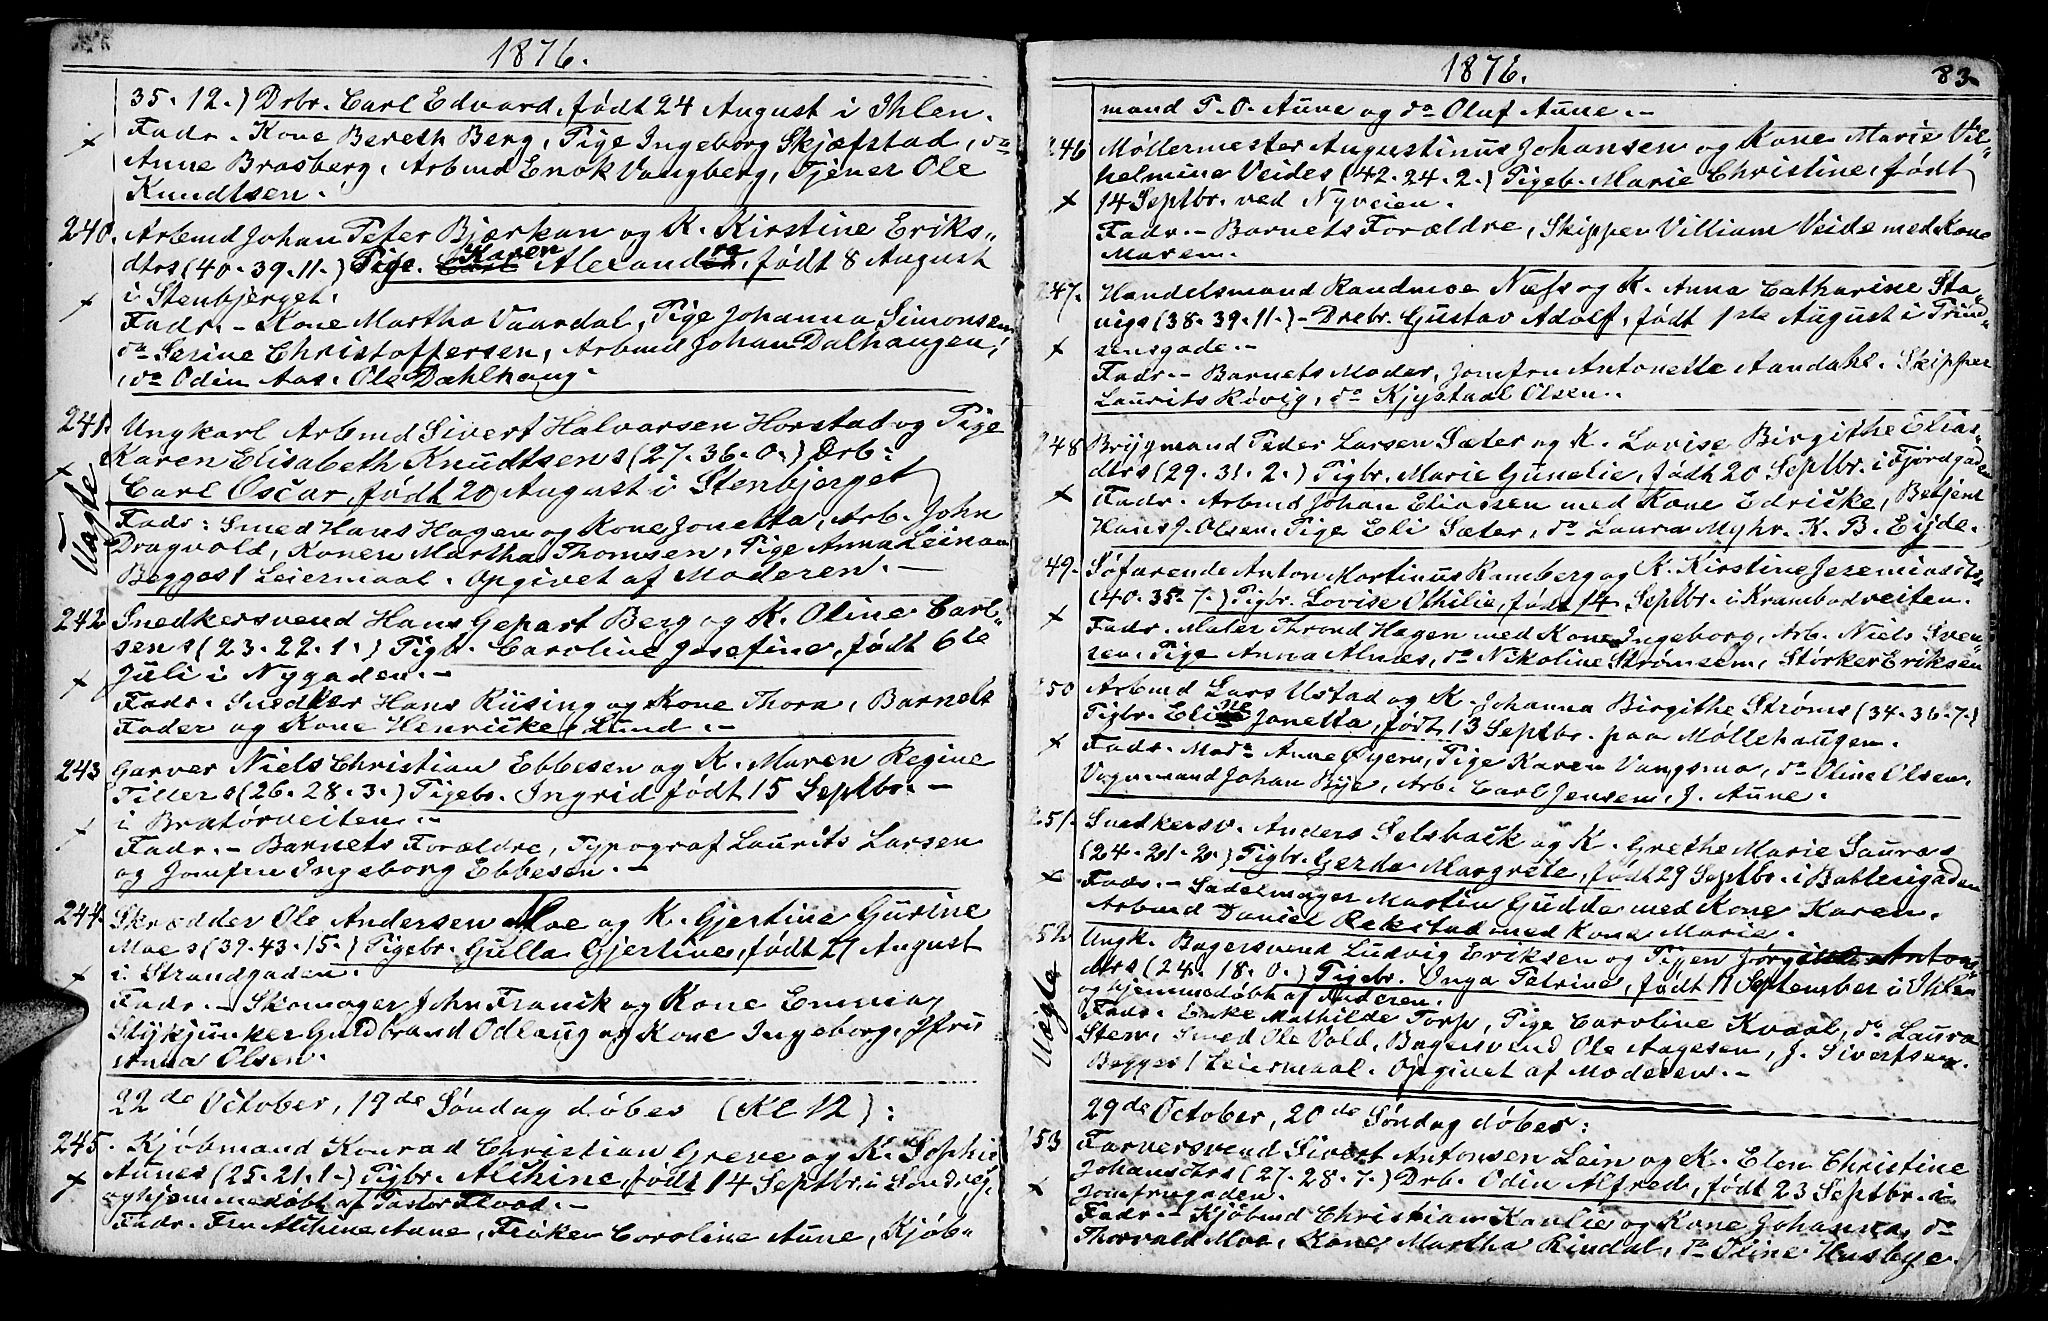 1876.
35. 12.) Drbr. Carl Edvard, født 24 August i Ihlen.
Fadr. Kone Bereth Berg, Pige Ingeborg Skjæfstad, do
Anne Brasberg, Arbmd Enok Vangberg, Tjener Ole
Knudtsen.
240. Arbmd Johan Peter Bjærkan og K. Kirstine Eriks-
dtrs (40. 39. 11.) Pige. Karen Alexandra, født 8 August
i Stenbjerget.
Fadr. - Kone Martha Vaardal, Pige Johanna Simonsen,
do Serine Christoffersen, Arbmd Johan Dalhaugen,
do Odin Aas. Ole Dahlhaug.
241. Ungkarl Arbmd Sivert Halvorsen Horstad og Pige
Karen Elisabeth Knudtsens (27. 36. 0.) Drb:
Carl Oscar, født 20 August i Stenbjerget
Uægte
Fadr: Smed Hans Hagen og Kone Jonetta, Arb. John
Dragvold, Konen Martha Thomsen, Pige Anna Leinan
Begges 1 Leiermaal. Opgivet af Moderen. -
242 Snedkersvend Hans Gepart Berg og K. Oline Carl-
sens (23. 22. 1.) Pigb. Caroline Josefine, født 6te
Juli i Nygaden. -
Fadr. Snedker Hans Rüsing og Kone Thora, Barnets
Fader og Kone Henricke Lund. -
243 Garver Niels Christian Ebbesen og K. Maren Regine
Tillers (26. 28. 3.) Pigebr. Ingrid født 15 Septbr. -
i Bratørveiten. -
Fadr. - Barnets Forældre, Typograf Laurits Larsen
og Jomfru Ingeborg Ebbesen. -
244. Skrædder Ole Andersen Moe og K. Gjertine Gurine
Moes (39. 43. 15.) Pigebr. Gulla Gjertine, født 21 August
i Strandgaden.
Fadr. - Skomager John Franik og Kone Emma,
Stykjunker Guldbrand Odlaug og Kone Ingeborg, Jfru
Anna Olsen.
22de October, 19de Søndag døbes (Kl 12):
245. Kjøbmand Konrad Christian Greve og K. Sophie
Aunes (25. 21. 1.) Pigbr. Alchine, født 14 Septbr. i Søndreg.
og hjemmedøbt af Pastor Flood. -
Fadr. Fru Alchine Aune, Frøken Caroline Aune, Kjøb-
1876.
83
mand P. O. Aune og do Oluf Aune. -
246 Møllermester Augustinus Johansen og Kone Marie Vil-
helmine Veides (42. 24. 2.) Pigeb. Marie Christine, født
14 Septbr. ved Nyveien.
Fadr. - Barnets Forældre, Skipper Villiam Veide med Kone
Maren.
247. Handelsmand Randmoe Næss og K. Anna Catharine Sta-
vigs (38. 39. 11.) - Drebr. Gustav Adolf, født 1ste August i Prind-
sensgade. -
Fadr. - Barnets Moder, Jomfru Antonette Aandahl. Skipper
Laurits Røvig, do Kjystaal Olsen.
248 Brygmand Peder Larsen Sæter og K. Lovise Birgithe Elias-
dtrs (29. 31. 2.) Pigbr. Marie Gunelie, født 20 Septbr. i Fjordgaden
Fadr. Arbmd Johan Eliassen med Kone Edricke, Betjent
Hans J. Olsen. Pige Eli Sæter, do Laura Myhr. K. B. Eijde.
249. Søfarende Anton Martinus Ramberg og K. Kirstine Jeremiasdtr
(40. 35. 7.) Pigbr. Lovise Othilie, født 14 Septbr. i Krambodveiten.
Fadr. Maler Thrond Hagen med Kone Ingeborg, Arb. Niels Sven-
sen, Pige Anna Alnæs, do Nikoline Strømsem, Størker Eriksen
250 Arbmd Lars Ustad og K. Johanna Birgithe Strøms (34. 36. 7.)
Pigbr. Eline Jonetta, født 13 Septbr. paa Møllehaugen.
Fadr. Mad. Anne Øyem, Pige Karen Vangsmo, do Oline Olsen,
Vognmand Johan Bye, Arb. Carl Jensen, J. Aune.
251. Snedkersv. Anders Selsbak og K. Grethe Marie Sauras
(24. 21. 2.) Pigbr. Gerda Margrete, født 29 Septbr. i Batterigaden
Fadr. - Sadelmager Martin Gudde med Kone Karen.
Arbmd Daniel Rekstad med Kone Marie.
252. Ungk. Bagersvend Ludvig Eriksen og Pigen Jørgine Antons-
dtrs (24. 18. 0.) Pigebr. Unga Petrine, født 11 September i Ihlen
og hjemmedøbt af Moderen.
Uægte
Fadr. Enke Mathilde Torp, Pige Caroline Kvaal, do Laura
Steen, Smed Ole Vold, Bagersvend Ole Aagesen, J. Sivertsen.
Begges 1 Leiermaal. Opgivet af Moderen. -
29de October, 20de Søndag døbes:
253 Farversvend Sivert Antonsen Lein og K. Elen Christine
Johansdtrs (27. 28. 7.) Drb. Odin Alfred, født 23 Septbr. i
Jomfrugaden.
Fadr. - Kjøbmd Christian Kaulie og Kone Johanna, do
Thorvald Moe, Kone Martha Rindal, do Oline Husbye.